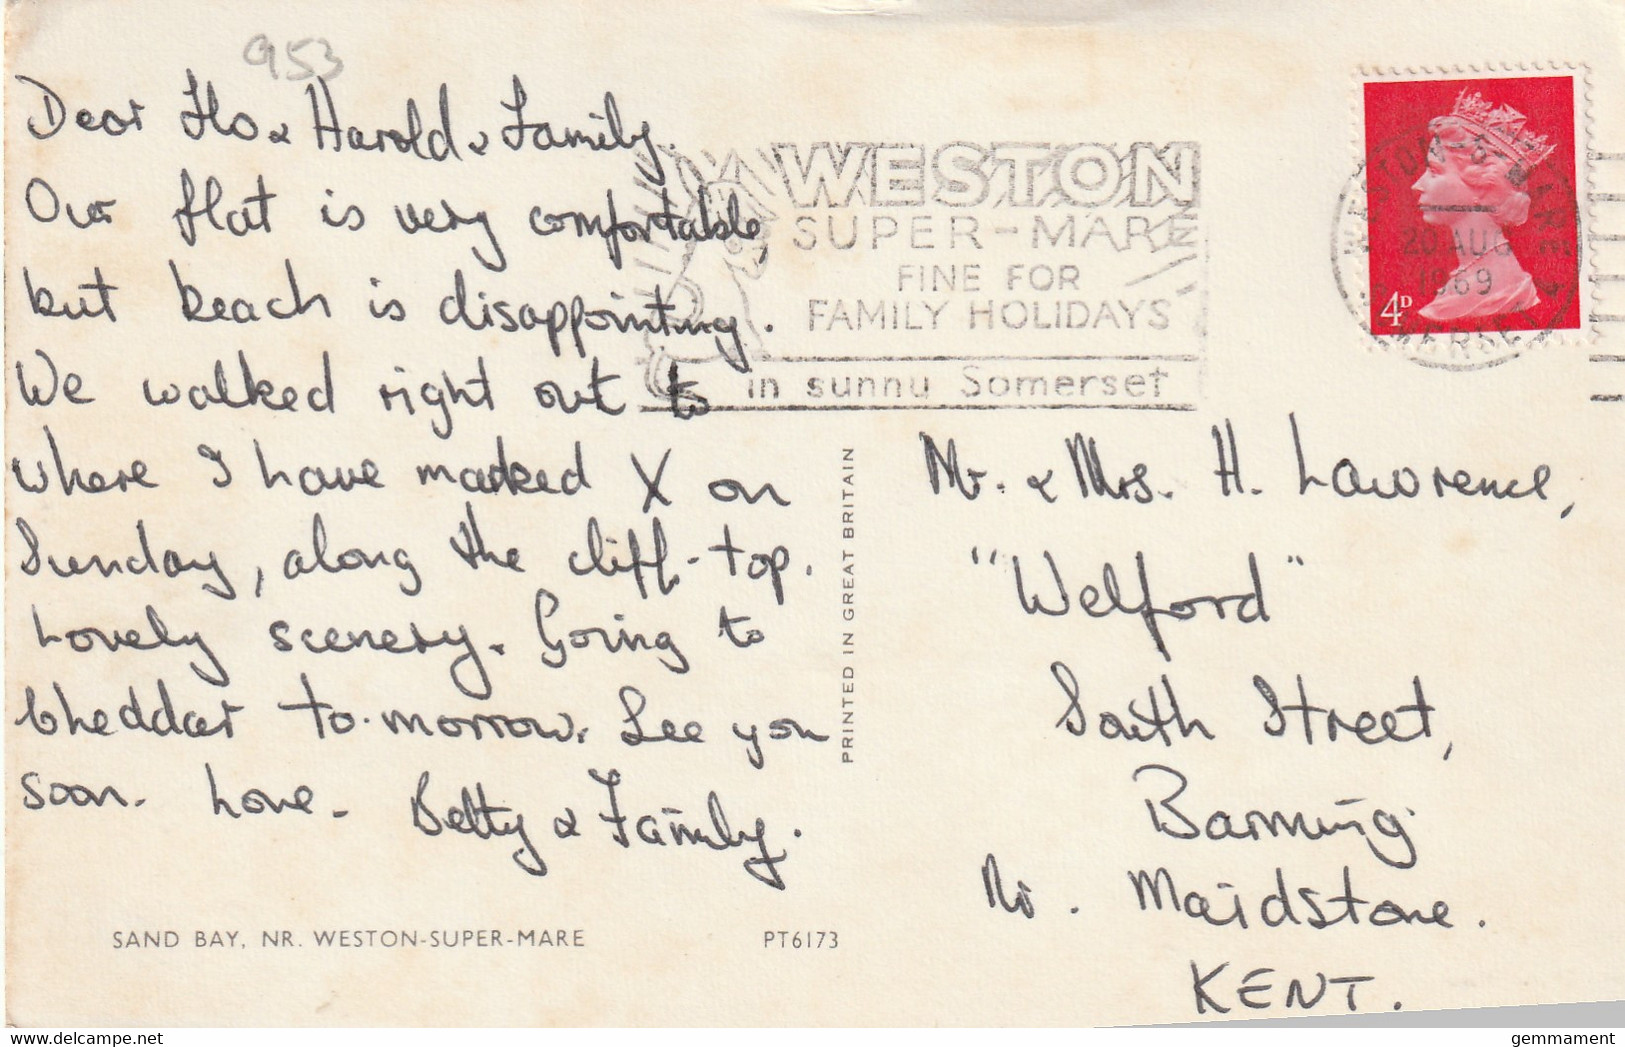 953
Dear Flo & Harold & Family.
Our flat is very comfortable,
but beach is disappointing.
We walked right out to
where I have marked X on
Sunday, along the cliff-top.
Lovely scenery. Going to
Cheddar to-morrow. See you
soon. Love. Betty & Family.
SAND BAY, NR. WESTON-SUPER-MARE
PT6173
PRINTED IN GREAT BRITAIN
WESTON
SUPER-MARE
FINE FOR
FAMILY HOLIDAYS
in sunny Somerset
WESTON-S-MARE
20 AUG
1969
SOMERSET
4D
Mr. & Mrs. H. Lawrence,
"Welford"
South Street,
Barming
Nr. Maidstone.
KENT.
gemmament